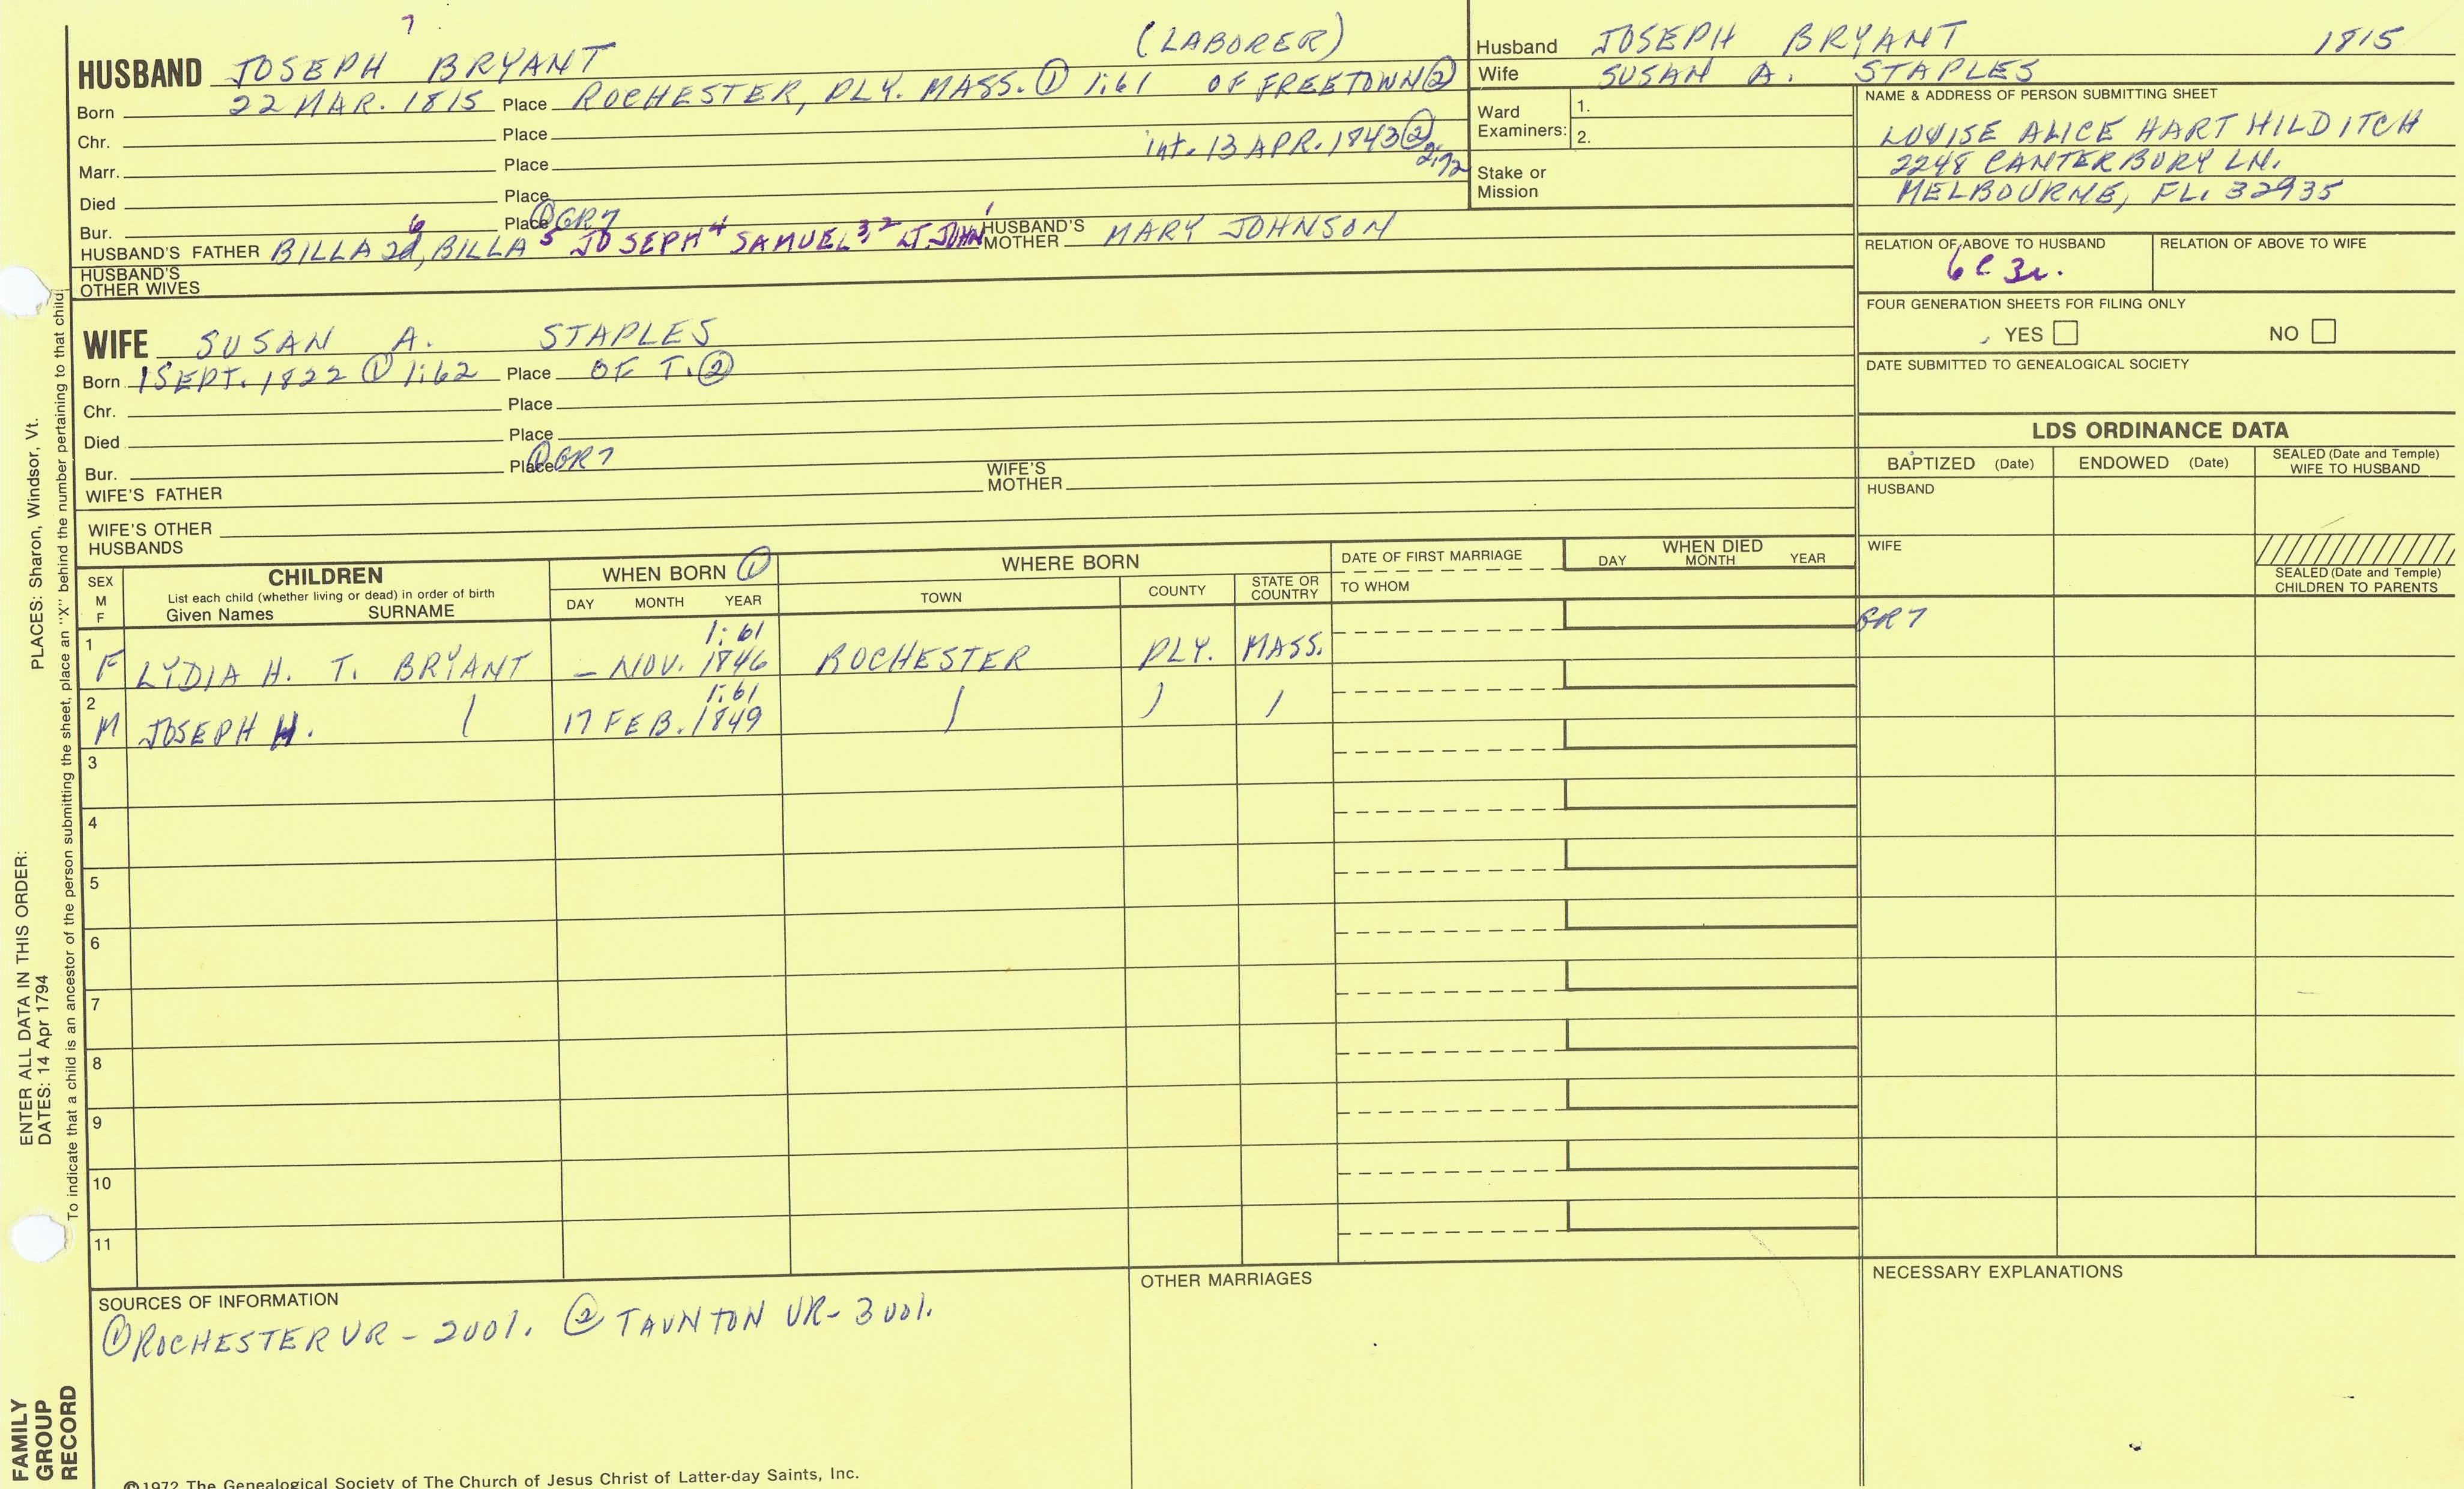 7
HUSBAND JOSEPH BRYANT (LABORER)
Born 22 MAR. 1815 Place ROCHESTER, PLY. MASS. ① 1:61 OF FREETOWN ②
Chr. Place
int. 13 APR. 1843 ② 2:72
Marr. Place
Died Place
Bur. Place ① GR7
HUSBAND'S FATHER BILLA 2d 6, BILLA 5 JOSEPH 4 SAMUEL 3, 2 LT. JOHN 1 HUSBAND'S MOTHER MARY JOHNSON
HUSBAND'S OTHER WIVES
WIFE SUSAN A. STAPLES
Born 1 SEPT. 1822 ① 1:62 Place OF T. ②
Chr. Place
Died Place
Bur. Place ① GR7
WIFE'S FATHER WIFE'S MOTHER
WIFE'S OTHER HUSBANDS
Husband JOSEPH BRYANT 1815
Wife SUSAN A. STAPLES
Ward Examiners: 1.
2.
Stake or Mission
NAME & ADDRESS OF PERSON SUBMITTING SHEET
LOUISE ALICE HART HILDITCH
2248 CANTERBURY LN.
MELBOURNE, FL. 32935
RELATION OF ABOVE TO HUSBAND RELATION OF ABOVE TO WIFE
6C 3r.
FOUR GENERATION SHEETS FOR FILING ONLY
YES NO
DATE SUBMITTED TO GENEALOGICAL SOCIETY
LDS ORDINANCE DATA
BAPTIZED (Date) ENDOWED (Date) SEALED (Date and Temple) WIFE TO HUSBAND
HUSBAND
WIFE
SEALED (Date and Temple) CHILDREN TO PARENTS
SEX M F
CHILDREN
List each child (whether living or dead) in order of birth
Given Names SURNAME
WHEN BORN ①
DAY MONTH YEAR
WHERE BORN
TOWN COUNTY STATE OR COUNTRY
DATE OF FIRST MARRIAGE
TO WHOM
WHEN DIED
DAY MONTH YEAR
1 F LYDIA H. T. BRYANT – NOV. 1846 1:61 ROCHESTER PLY. MASS. GR7
2 M JOSEPH H. 17 FEB. 1849 1:61
3
4
5
6
7
8
9
10
11
SOURCES OF INFORMATION
① ROCHESTER VR – 2 vol. ② TAUNTON VR – 3 vol.
OTHER MARRIAGES
NECESSARY EXPLANATIONS
©1972 The Genealogical Society of The Church of Jesus Christ of Latter-day Saints, Inc.
ENTER ALL DATA IN THIS ORDER:
DATES: 14 Apr 1794
PLACES: Sharon, Windsor, Vt.
To indicate that a child is an ancestor of the person submitting the sheet, place an "X" behind the number pertaining to that child.
FAMILY GROUP RECORD